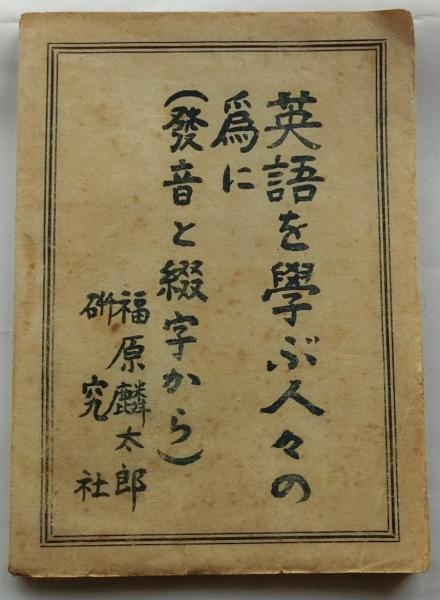 英語を學ぶ人々の
爲に
（發音と綴字から）
福原麟太郎
研究社